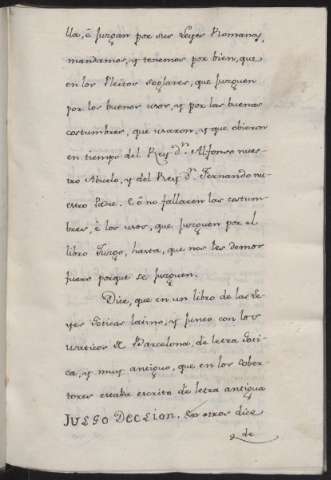 lla, ó Juzgan por sus Leyes Romanas,
mandamos, y tenemos por bien, que
en los Pleitos seglares, que juzguen
por los buenos usos, y por las buenas
costumbres, que usaron, y que obieron
en tiempo del Rey d.n Alfonso nues
tro Abuelo, y del Rey d.n Fernando nu
estro Padre. E ó no fallaren las costum
bres, é los usos, que juzguen por el
libro Juzgo, hasta, que nos les demos
fuero porque se juzguen.
Dice, que en un libro de las Le
yes Goticas latino, y junto con los
Usaticos de Barcelona, de letra Goti
ca, y muy antiguo, que en los cober
tores estaba escrito de letra antigua
JULGO DE LEION. En otros dice
de